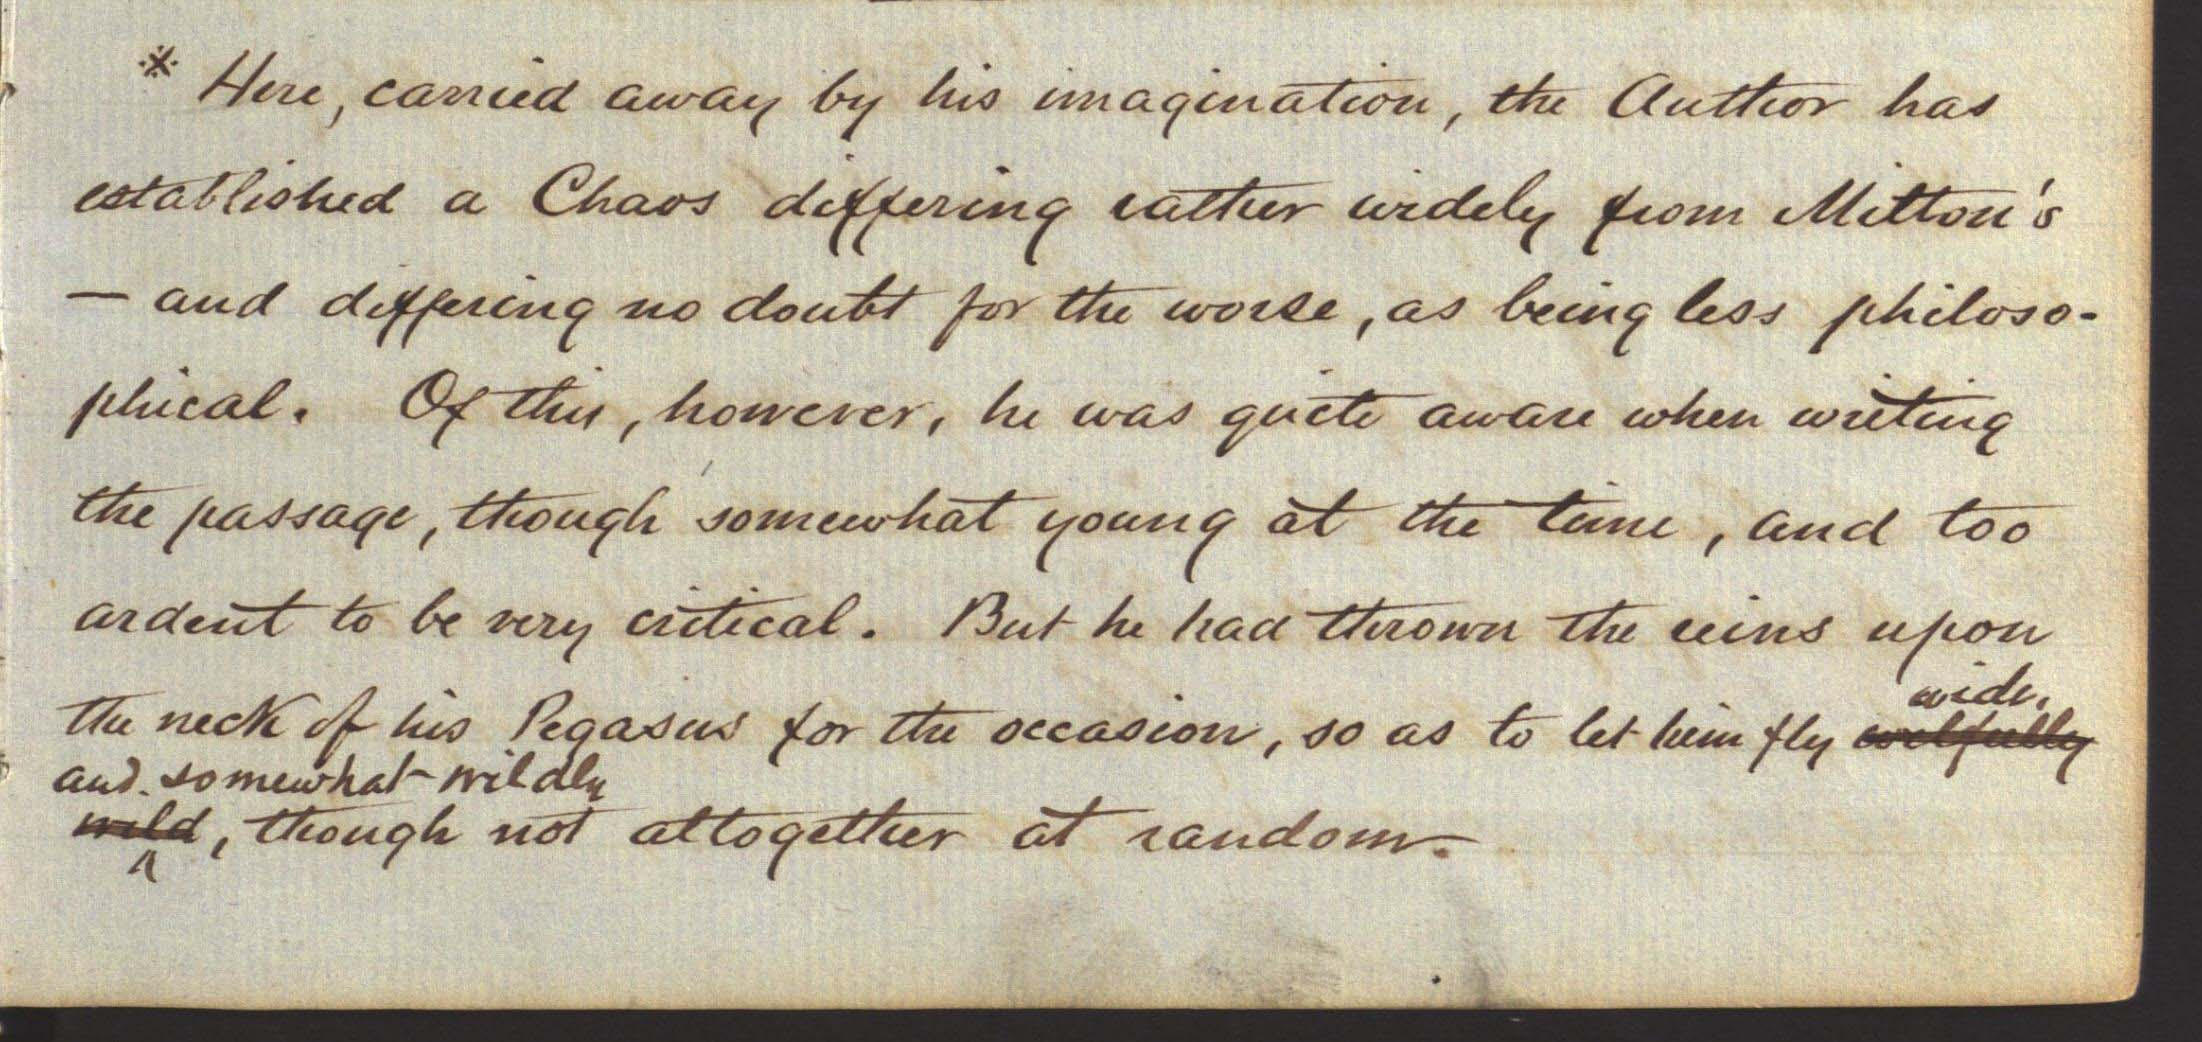 * Here, carried away by his imagination, the Author has
established a Chaos differing rather widely from Milton's
— and differing no doubt for the worse, as being less philoso-
phical. Of this, however, he was quite aware when writing
the passage, though somewhat young at the time, and too
ardent to be very critical. But he had thrown the reins upon
wide,
the neck of his Pegasus for the occasion, so as to let him fly wilfully
and somewhat wildly
wild, though not altogether at random.